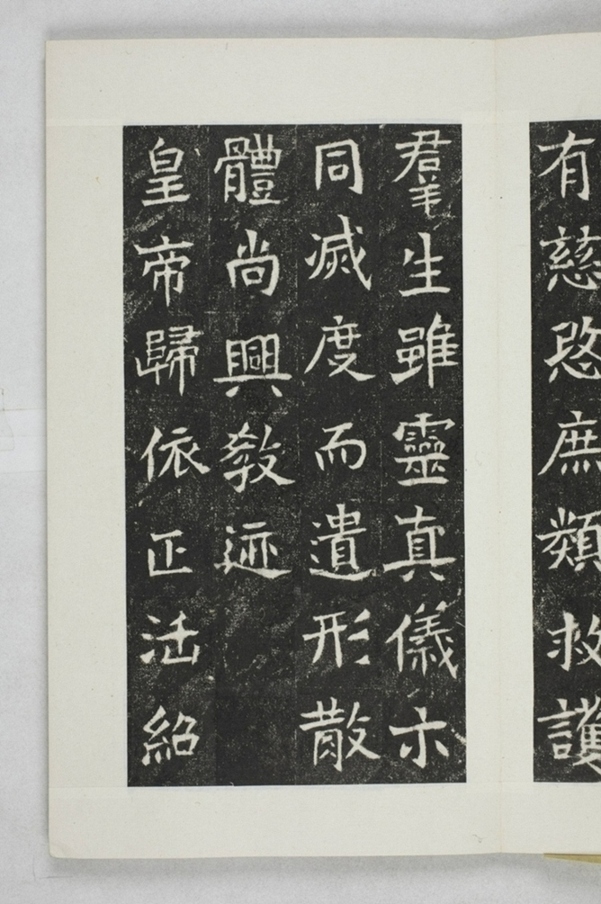 有慈愍庶類救護
群生雖靈真儀示
同滅度而遺形散
體尚興教迹
皇帝歸依正法紹